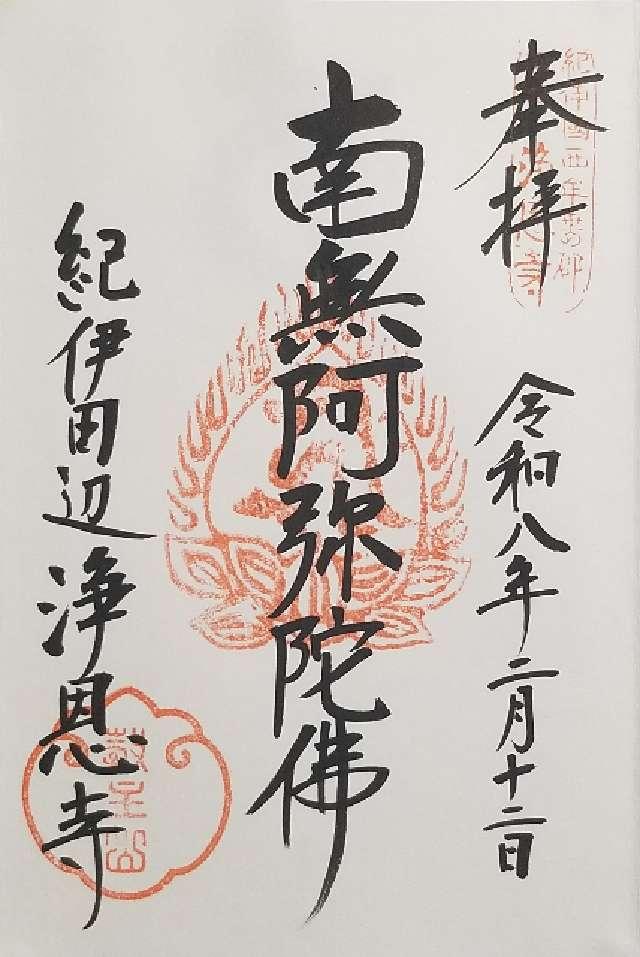 奉拝
紀伊國西牟婁郡
浄恩寺
令和八年二月十二日
南無阿弥陀佛
紀伊田辺 浄恩寺